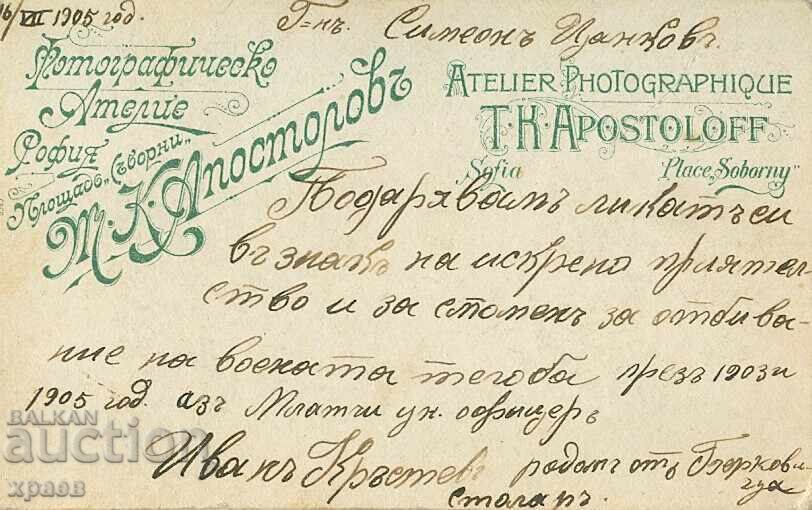 16/VII 1905 год.
Г-нъ. Симеонъ Цанковъ.
Фотографическо
Ателие
София
Площадъ „Съборни“
Т. К. Апостоловъ
ATELIER PHOTOGRAPHIQUE
T. K. APOSTOLOFF
Sofia Place „Soborny“
Подарявамъ ликатъ си
въ знакъ на искрено приятел
ство и за споменъ за отбива-
ние на воената тегоба презъ 1903 и
1905 год. азъ Млатчи ун. офицеръ
Иванъ Кръстевъ родомъ отъ Берковица
столаръ.
BALKAN
auction
храов